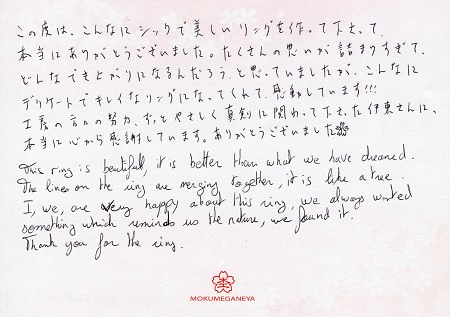 この度は、こんなにシックで美しいリングを作って下さって、
本当にありがとうございました。たくさんの思いが詰まりすぎて、
どんなでき上がりになるんだろう、と思っていましたが、こんなに
デリケートでキレイなリングになってくれて、感動しています!!!
工房の方々の努力、ずっとやさしく真剣に関わって下さった伊東さんに、
本当に心から感謝しています。ありがとうございました
This ring is beautiful, it is better than what we have dreamed.
The lines on the ring are merging together, it is like a tree.
I, we, are very happy about this ring, we always wanted
something which reminds us the nature, we found it.
Thank you for the ring.
MOKUMEGANEYA